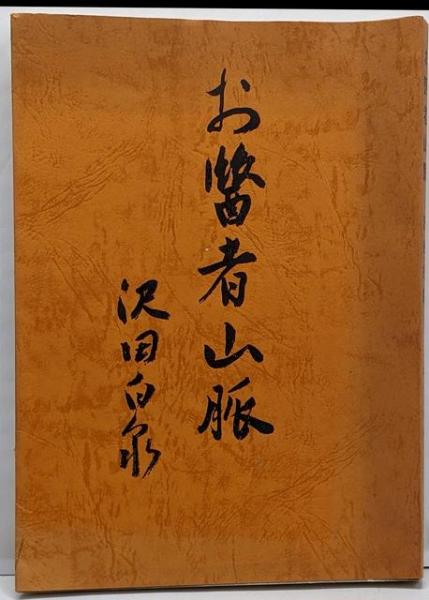 お醫者山脈
沢田白泉